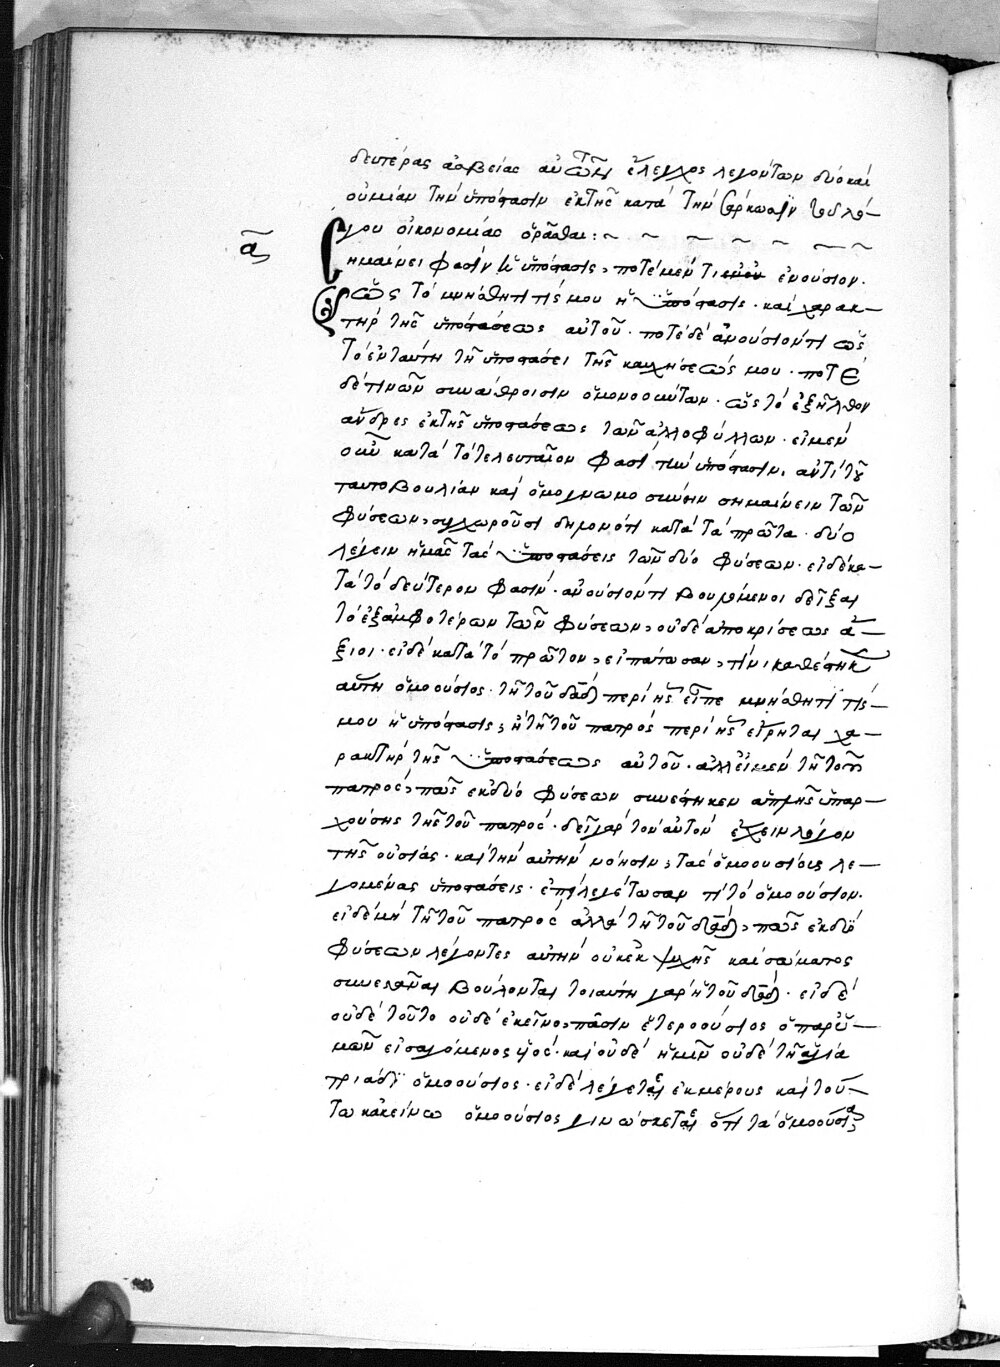 δευτέρας ἀσεβείας αὐτῶν ἔλεγχος λεγόντων δύο καὶ
οὐ μίαν τὴν ὑπόστασιν ἐκ τῆς κατὰ τὴν σάρκωσιν τοῦ λό-
γου οἰκονομίας ὁρᾶσθαι:
α
Σημαίνει φασὶν ἡ ὑπόστασις, ποτὲ μὲν τι ἐνούσιον.
ὡς τὸ μνήσθητι τίς μου ἡ ὑπόστασις. καὶ χαρακ-
τὴρ τῆς ὑποστάσεως αὐτοῦ. ποτὲ δὲ ἀνούσιόν τι ὡς
τὸ ἐν ταύτῃ τῇ ὑποστάσει τῆς καυχήσεώς μου. ποτὲ
δέ τινων συνάθροισιν ὁμονοούντων. ὡς τὸ ἐξῆλθον
ἄνδρες ἐκ τῆς ὑποστάσεως τῶν ἀλλοφύλων. εἰ μὲν
οὖν κατὰ τὸ τελευταῖον φασὶ τὴν ὑπόστασιν, ἀντὶ τοῦ
ταυτοβουλίαν καὶ ὁμογνωμοσύνην σημαίνειν τῶν
φύσεων, συγχωροῦσι δηλονότι κατὰ τὰ πρῶτα. δύο
λέγειν ἡμᾶς τὰς ὑποστάσεις τῶν δύο φύσεων. εἰ δὲ κα-
τὰ τὸ δεύτερον φασὶν. ἀνούσιόν τι βουλόμενοι δεῖξαι
τὸ ἐξ ἀμφοτέρων τῶν φύσεων, οὐδὲ ἀποκρίσεως ἄ-
ξιοι. εἰ δὲ κατὰ τὸ πρῶτον, εἰπάτωσαν, τίνι καθέστηκεν
αὕτη ὁμοούσιος. τῇ τοῦ δαδ περὶ ἧς εἶπε μνήσθητι τίς
μου ἡ ὑπόστασις; ἢ τῇ τοῦ πατρὸς περὶ ἧς εἴρηται χα-
ρακτὴρ τῆς ὑποστάσεως αὐτοῦ. ἀλλ' εἰ μὲν τῇ τοῦ
πατρὸς, πῶς ἐκ δύο φύσεων συνέστηκεν ἁπλῆς ὑπαρ-
χούσης τῆς τοῦ πατρός. δεῖ γὰρ τὸν αὐτὸν ἔχειν λόγον
τῆς οὐσίας. καὶ τὴν αὐτὴν νόησιν, τὰς ὁμοουσίους λε-
γομένας ὑποστάσεις. ἐπεὶ λεγέτωσαν τί τὸ ὁμοούσιον.
εἰ δὲ μὴ τῇ τοῦ πατρὸς ἀλλὰ τῇ τοῦ δαδ, πῶς ἐκ δύο
φύσεων λέγοντες αὐτὴν οὐκ ἐκ ψυχῆς καὶ σώματος
συνεστάναι βούλονται τοιαύτη γὰρ ἡ τοῦ δαδ. εἰ δὲ
οὐδὲ τοῦτο οὐδὲ ἐκεῖνο, πᾶσιν ἑτεροούσιος ὁ παρ' ὑ-
μῶν εἰσαγόμενος χς. καὶ οὐδὲ ἡμῖν οὐδὲ τῇ ἁγίᾳ
τριάδι ὁμοούσιος. εἰ δὲ λέγεται ἐκ μέρους καὶ τού-
τω κἀκείνω ὁμοούσιος γινωσκέτω ὅτι τὰ ὁμοούσια